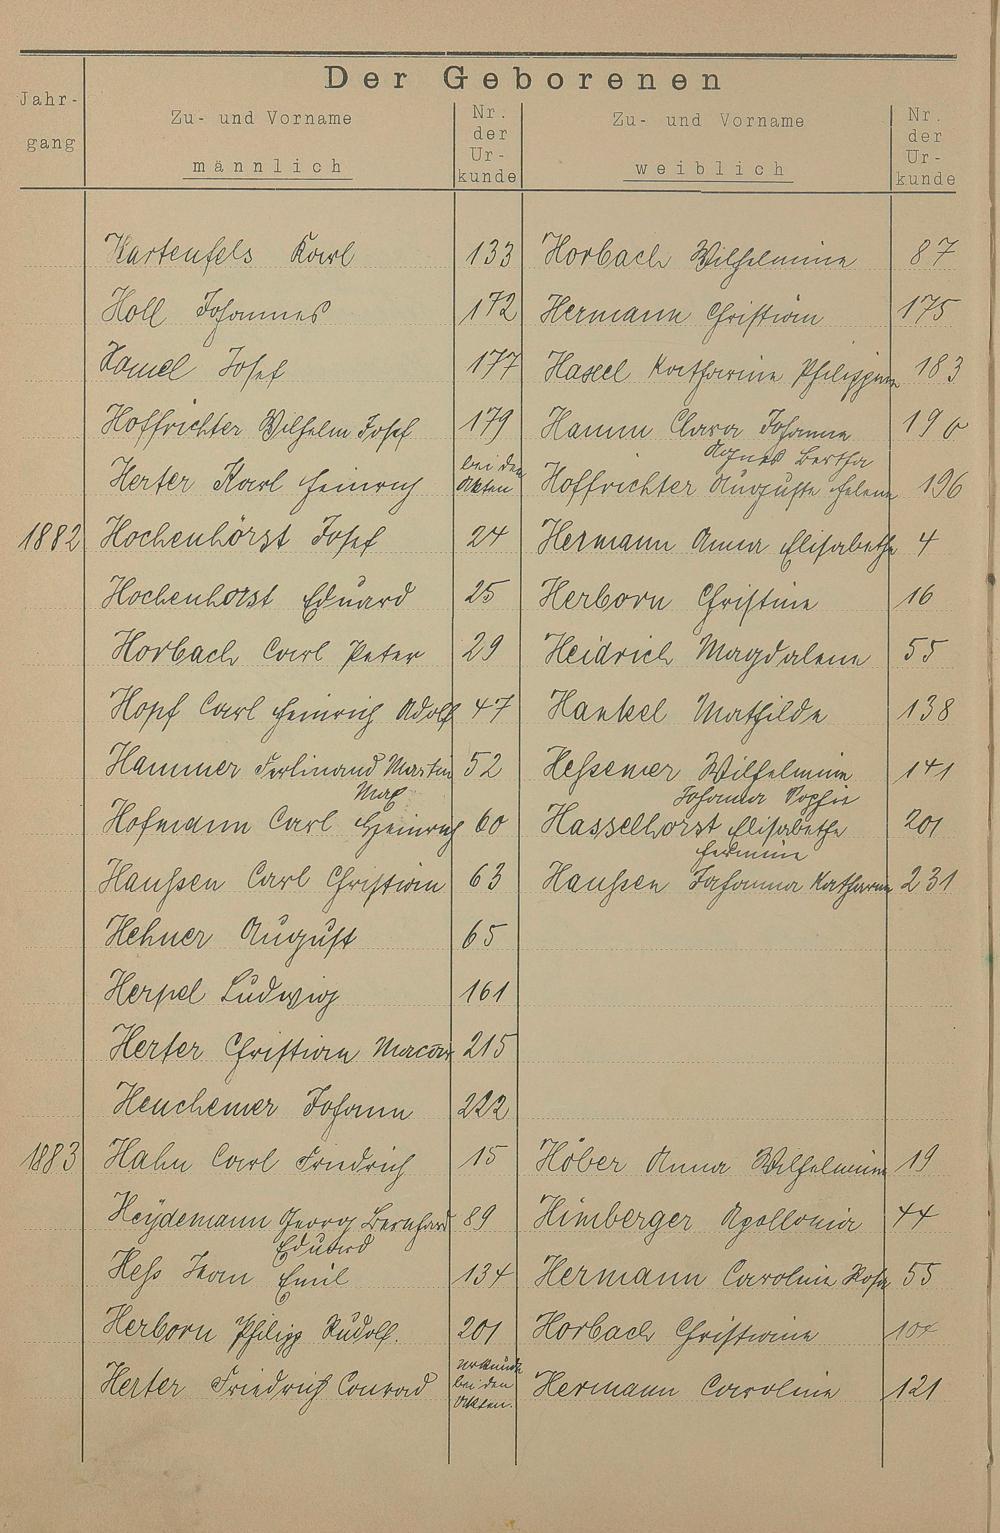 Der Geborenen
Jahr-
gang
Zu- und Vorname
männlich
Nr.
der
Ur-
kunde
Zu- und Vorname
weiblich
Nr.
der
Ur-
kunde
Hartenfels Karl 133 Horbach Wilhelmine 87
Holl Johannes 172 Hermann Christian 175
Hamel Josef 177 Hasecl Katharine Philippine 183
Hoffrichter Wilhelm Josef 179 Hamm Clara Johanna 190
Agnes Bertha
Herter Karl Heinrich bei den Akten Hoffrichter Auguste Helene 196
1882 Hochenhörst Josef 24 Hermann Anna Elisabethe 4
Hochenhorst Eduard 25 Herborn Christine 16
Horbach Carl Peter 29 Heidrich Magdalene 55
Hopf Carl Heinrich Adolf 47 Hankel Mathilde 138
Hammer Ferdinand Martin 52 Heßemer Wilhelmine 141
Max Johanna Sophie
Hofmann Carl Heinrich 60 Hasselhorst Elisabethe 201
Hermine
Haußen Carl Christian 63 Haußen Johanna Katharine 231
Hehner August 65
Herpel Ludwig 161
Herter Christian 215
Heuchemer Johann 222
1883 Hahn Carl Friedrich 15 Höber Anna Wilhelmine 19
Heÿdemann Georg Bernhard 89 Himberger Apollonia 44
Eduard
Heß Emil 134 Hermann Caroline Rosa 55
Herborn Philipp Rudolf. 201 Horbach Christiane 104
Herter Friedrich Conrad Urkunde bei den Akten. Hermann Caroline 121